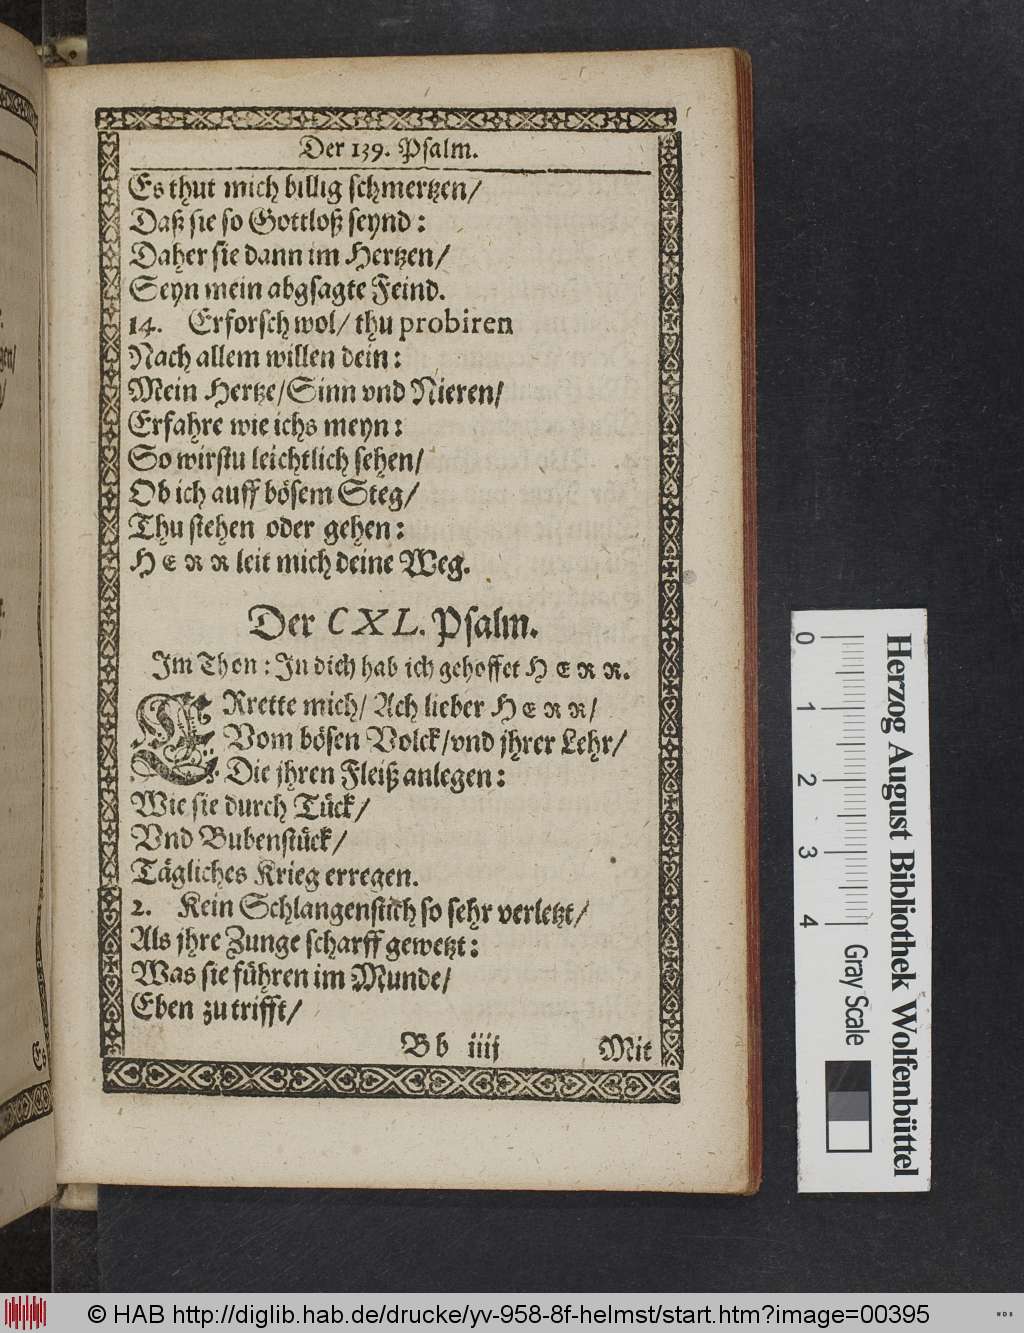 Der 139. Psalm.
Es thut mich billig schmertzen/
Daß sie so Gottloß seynd:
Daher sie dann im Hertzen/
Seyn mein abgsagte Feind.
14. Erforsch wol/ thu probiren
Nach allem willen dein:
Mein Hertze/Sinn vnd Nieren/
Erfahre wie ichs meyn:
So wirstu leichtlich sehen/
Ob ich auff bösem Steg/
Thu stehen oder gehen:
HERR leit mich deine Weg.
Der CXL. Psalm.
Im Thon: In dich hab ich gehoffet HERR.
ERrette mich/ Ach lieber HERR/
Vom bösen Volck/vnd jhrer Lehr/
Die jhren Fleiß anlegen:
Wie sie durch Tück/
Vnd Bubenstück/
Tägliches Krieg erregen.
2. Kein Schlangenstich so sehr verletzt/
Als jhre Zunge scharff gewetzt:
Was sie führen im Munde/
Eben zu trifft/
Bb iiij Mit
Es
gen/
0 1 2 3 4
Gray Scale
Herzog August Bibliothek Wolfenbüttel
© HAB http://diglib.hab.de/drucke/yv-958-8f-helmst/start.htm?image=00395